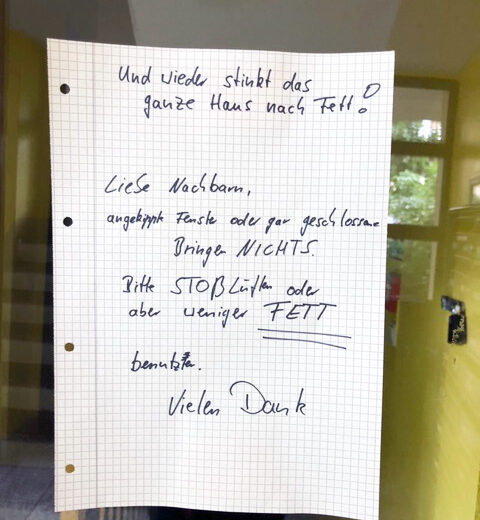 Und wieder stinkt das
ganze Haus nach Fett!
Liebe Nachbarn,
angekippte Fenster oder gar geschlossene
Bringen NICHTS.
Bitte STOßLüften oder
aber weniger FETT
benutzen.
Vielen Dank